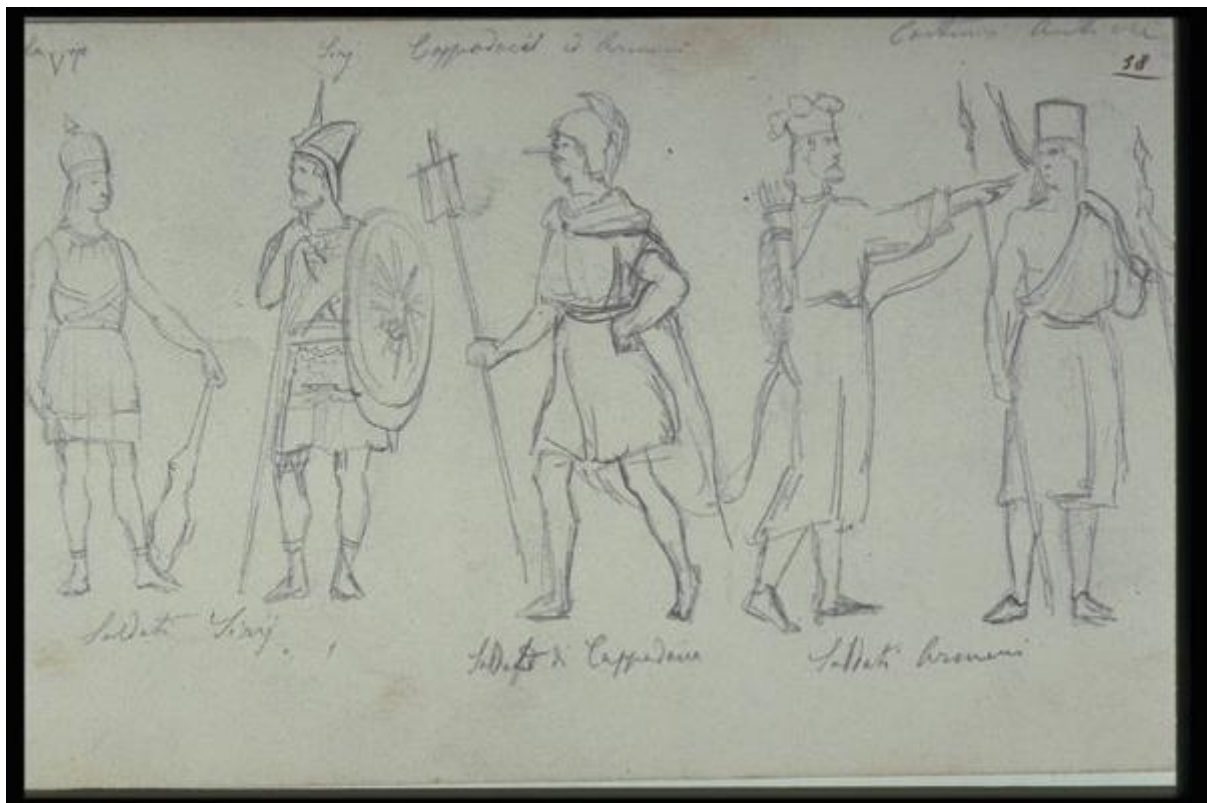 Sirj Cappadoci ed Armeni
Costumi Antichi
38
Soldati Sirj.
Soldato di Cappadocia
Soldati Armeni